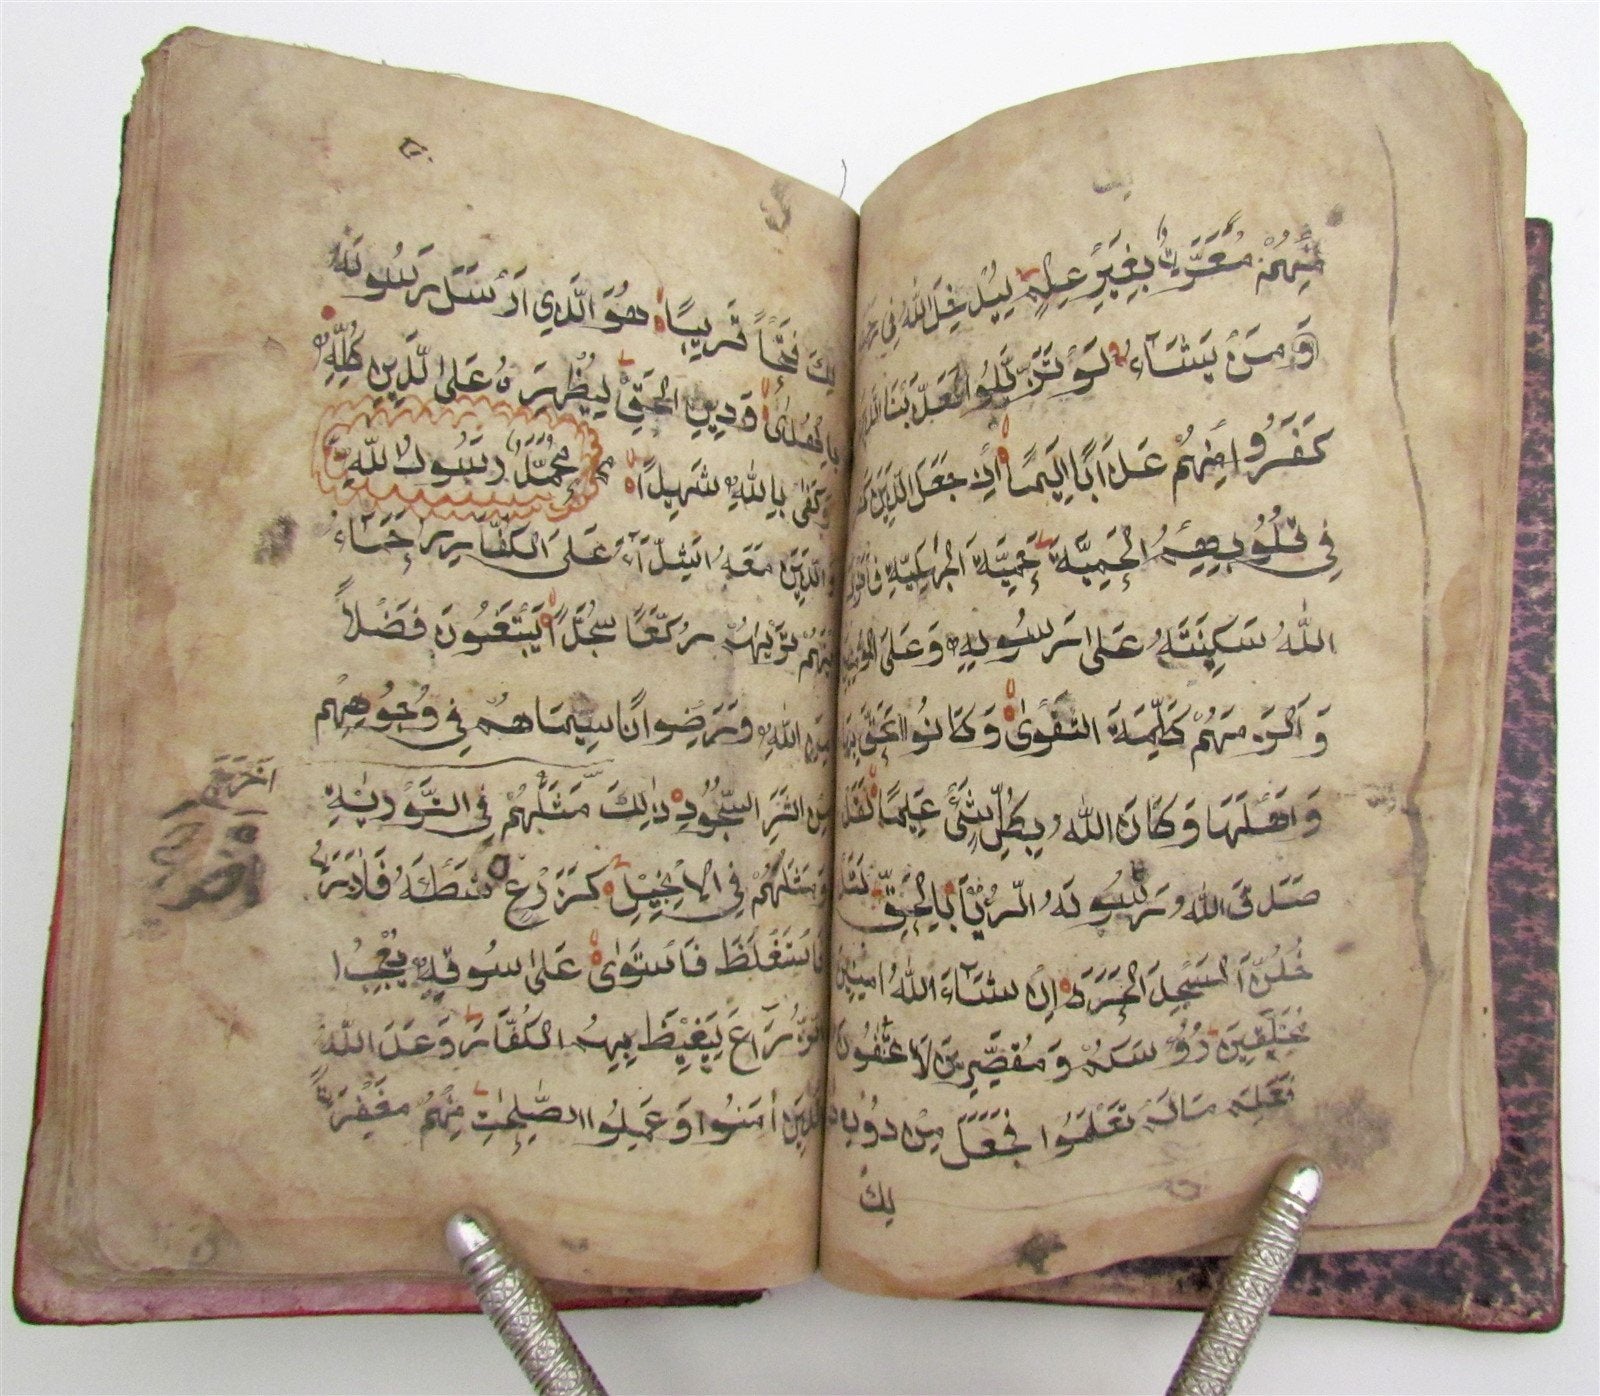 مِنْهُمْ مَعَرَّةٌ بِغَيْرِ عِلْمٍ لِيُدْخِلَ اللهُ فِي
مَنْ يَشَآءُ لَوْ تَزَيَّلُوا لَعَذَّبْنَا الَّذِينَ
كَفَرُوا مِنْهُمْ عَذَابًا اَلِيمًا اِذْ جَعَلَ الَّذِينَ
فِي قُلُوبِهِمُ الْحَمِيَّةَ حَمِيَّةَ الْجَاهِلِيَّةِ
اللهُ سَكِينَتَهُ عَلَى رَسُولِهِ وَعَلَى الْمُؤْمِنِينَ
وَاَلْزَمَهُمْ كَلِمَةَ التَّقْوَىٰ وَكَانُوا اَحَقَّ بِهَا
وَاَهْلَهَا وَكَانَ اللهُ بِكُلِّ شَيْءٍ عَلِيمًا لَقَدْ
صَدَقَ اللهُ رَسُولَهُ الرُّءْيَا بِالْحَقِّ
الْمَسْجِدَ الْحَرَامَ اِنْ شَآءَ اللهُ اٰمِنِينَ
مُحَلِّقِينَ رُؤُسَكُمْ وَمُقَصِّرِينَ لَا تَخَافُونَ
فَعَلِمَ مَالَمْ تَعْلَمُوا فَجَعَلَ مِنْ دُونِ
لِكَ
لِكَ فَتْحًا قَرِيبًا هُوَ الَّذِي اَرْسَلَ رَسُولَهُ
بِالْهُدَىٰ وَدِينِ الْحَقِّ لِيُظْهِرَهُ عَلَى الدِّينِ كُلِّهِ
وَكَفَىٰ بِاللهِ شَهِيدًا مُحَمَّدٌ رَسُولُ اللهِ
وَالَّذِينَ مَعَهُ اَشِدَّآءُ عَلَى الْكُفَّارِ رُحَمَآءُ
بَيْنَهُمْ تَرَيٰهُمْ رُكَّعًا سُجَّدًا يَبْتَغُونَ فَضْلًا
مِنَ اللهِ وَرِضْوَانًا سِيمَاهُمْ فِي وُجُوهِهِمْ
مِنْ اَثَرِ السُّجُودِ ذٰلِكَ مَثَلُهُمْ فِي التَّوْرٰيةِ
وَمَثَلُهُمْ فِي الْاِنْجِيلِ كَزَرْعٍ شَطْئَهُ
فَاسْتَغْلَظَ فَاسْتَوَىٰ عَلَى سُوقِهِ يُعْجِبُ ا
لزُّرَّاعَ لِيَغِيظَ بِهِمُ الْكُفَّارَ وَعَدَ اللهُ
الَّذِينَ اٰمَنُوا وَعَمِلُوا الصّٰلِحٰتِ مِنْهُمْ مَغْفِرَةً